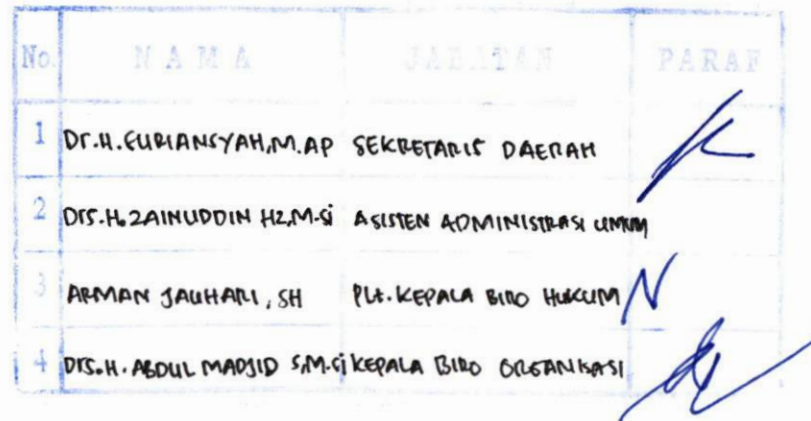 No. N A M A JABATAN PARAF
1 Dr.H.SURIANSYAH,M.AP SEKRETARIS DAERAH
2 Drs.H.ZAINUDDIN HZ,M.Si ASISTEN ADMINISTRASI UMUM
3 ARMAN JAUHARI, SH Plt. KEPALA BIRO HUKUM
4 Drs.H. ABDUL MADJID S,M.Si KEPALA BIRO ORGANISASI